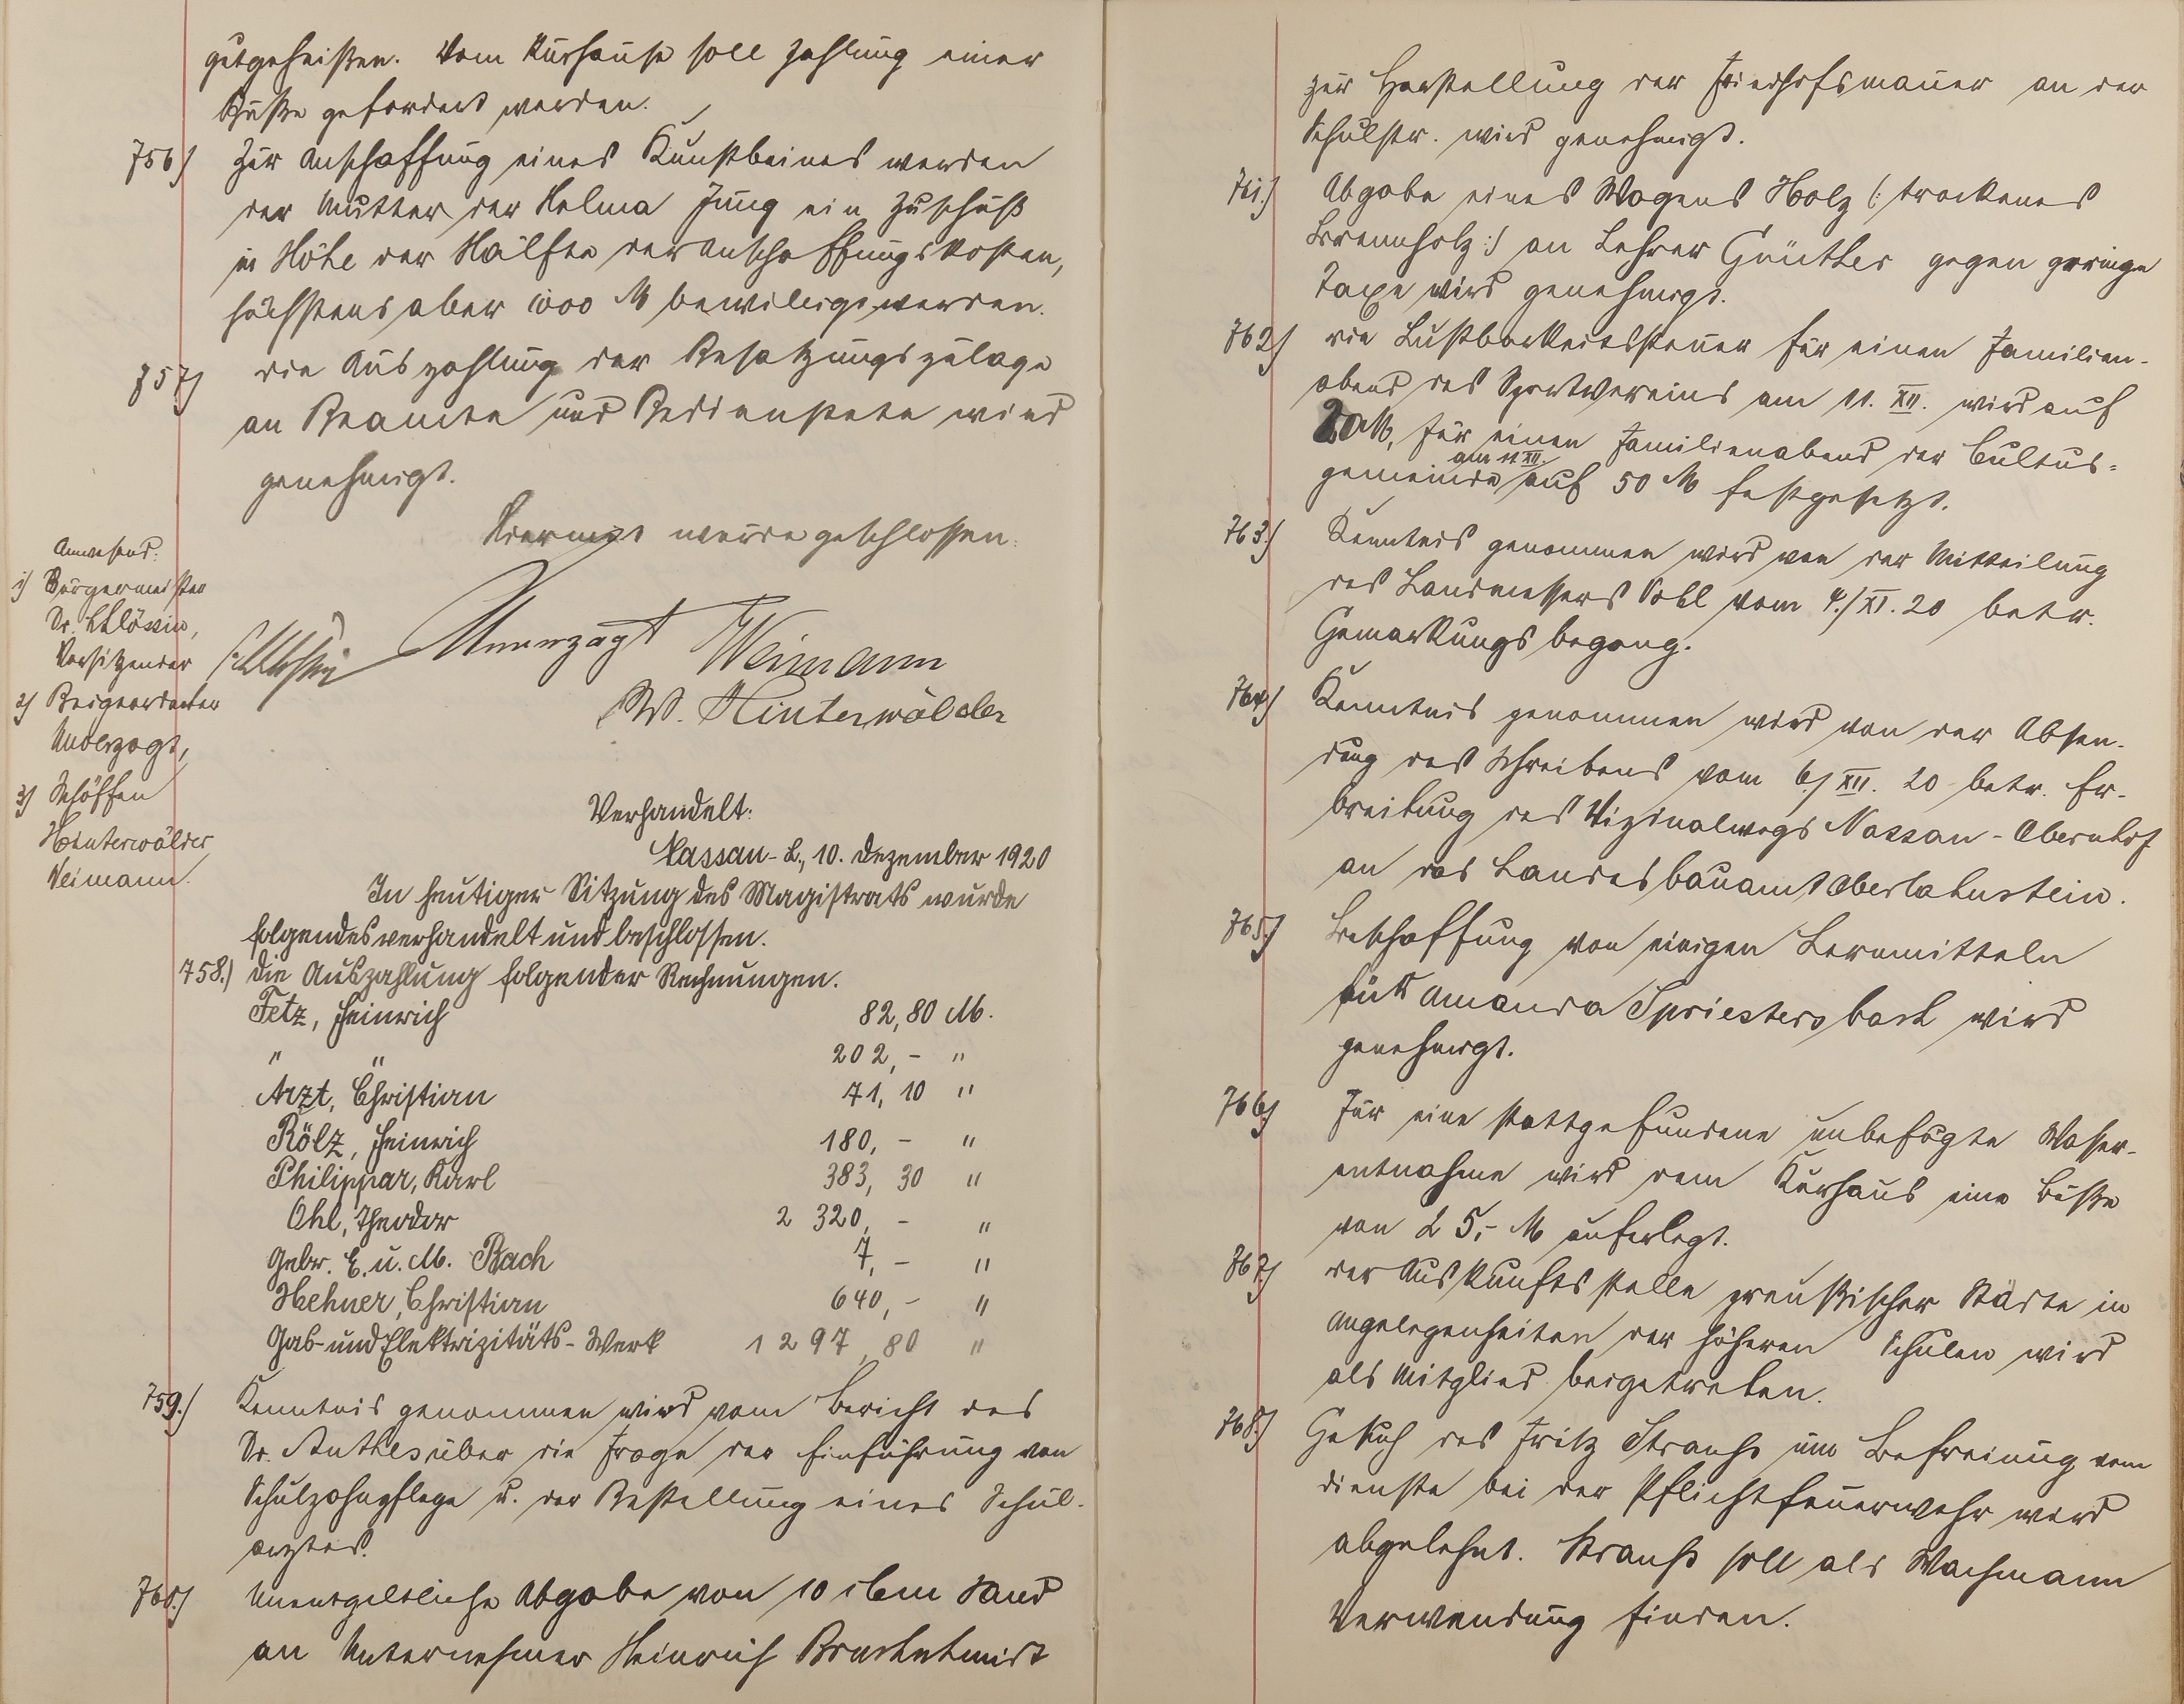 gutgeheißen. Vom Kurhause soll Zahlung einer
Buße gefordert werden.
756) Zur Anschaffung eines Kunstbeines werden
der Mutter der Selma Jung ein Zuschuß
in Höhe der Hälfte der Anschaffungskosten,
höchstens aber 1000 M bewilligt werden.
757) die Auszahlung der Besatzungszulage
an Beamte und Bedienstete wird
genehmigt.
Hiermit wurde geschlossen.
Unverzagt Weimann
W. Hinterwälder
Anwesend:
1) Bürgermeister
Dr.
Vorsitzender
2) Beigeordneter
Unverzagt,
3) Schöffen
Hinterwälder
Weimann.
Verhandelt:
Nassau-L., 10. Dezember 1920
In heutiger Sitzung des Magistrats wurde
folgendes verhandelt und beschlossen.
758.) die Auszahlung folgender Rechnungen.
Fetz, Heinrich 82,80 M.
" " 202,- "
Arzt, Christian 71,10 "
Rölz, Heinrich 180,- "
Philippar, Karl 383,30 "
Ohl, Theodor 2 320,- "
Gebr. E. u. M. Bach 7,- "
Hehner, Christian 640,- "
Gas- und Elektrizitäts-Werk 1 297,80 "
759.) Kenntnis genommen wird vom Bericht des
Dr. Anthes über die Frage der Einführung von
Schulzahnpflege u. der Bestellung eines Schul-
arztes.
760.) Unentgeltliche Abgabe von 10 cbm Sand
an Unternehmer Heinrich
zur Herstellung der Friedhofsmauer an der
Schulstr. wird genehmigt.
761.) Abgabe eines Wagens Holz (: trockenes
Brennholz :) an Lehrer Günther gegen geringe
Taxe wird genehmigt.
762) die Lustbarkeitssteuer für einen Familien-
abend des Sportvereins am 11. XII. wird auf
20 M, für einen Familienabend der Cultus-
gemeinde am 11 XII. auf 50 M festgesetzt.
763.) Kenntnis genommen wird von der Mitteilung
des Landmessers vom 4./XI. 20 betr.
Gemarkungsbegang.
764) Kenntnis genommen wird von der Absen-
dung des Schreibens vom 6./XII. 20 betr. Er-
breitung des Vizinalwegs Nassau-Obernhof
an das Landesbauamt Oberlahnstein.
765.) Beschaffung von einigen Lernmitteln
für Amanda Spriestersbach wird
genehmigt.
766) Für eine stattgefundene unbefugte Wasser-
entnahme wird dem Kurhaus eine Buße
von 25,- M auferlegt.
767) der Auskunftsstelle preußischer Städte in
Angelegenheiten der höheren Schulen wird
als Mitglied beigetreten.
768.) Gesuch des Fritz Strauß um Befreiung vom
dienste bei der Pflichtfeuerwehr wird
abgelehnt. Strauß soll als Wachmann
Verwendung finden.